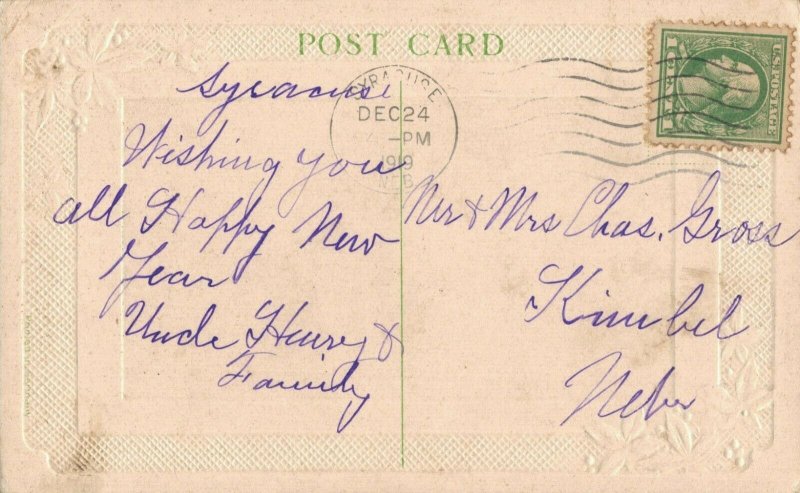 POST CARD
U.S. POSTAGE
SYRACUSE
DEC 24
-PM
1919
NEB
Syracuse
Wishing you
all Happy New
Year
Uncle Henry &
Family
Mr & Mrs Chas. Gross
Kimbel
Nebr